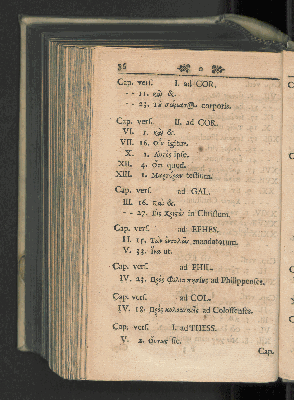 36
Cap. vers. I. ad COR.
- - 11. καὶ &.
- - 23. Τὰ σώματος corporis.
Cap. vers. II. ad COR.
VI. 1. καὶ &.
VII. 16. Οὖν igitur.
X. 1. Αυτὸς ipse.
XII. 4. Οτι quod.
XIII. 1. Μαρτύρων testium.
Cap. vers. ad GAL.
III. 16. καὶ &.
- - 27. Εις Χριςὸν in Christum.
Cap. vers. ad EPHES.
II. 15. Τῶν ἐντολῶν mandatorum.
V. 33. ἵνα ut.
Cap. vers. ad PHIL.
IV. 23. Πρὸς Φιλιππησίυς ad Philippenses.
Cap. vers. ad COL.
IV. 18. Πρὸς κολασσαεῖς ad Colossenses.
Cap. vers. I. ad THESS.
V. 2. Ουτως sic.
Cap.